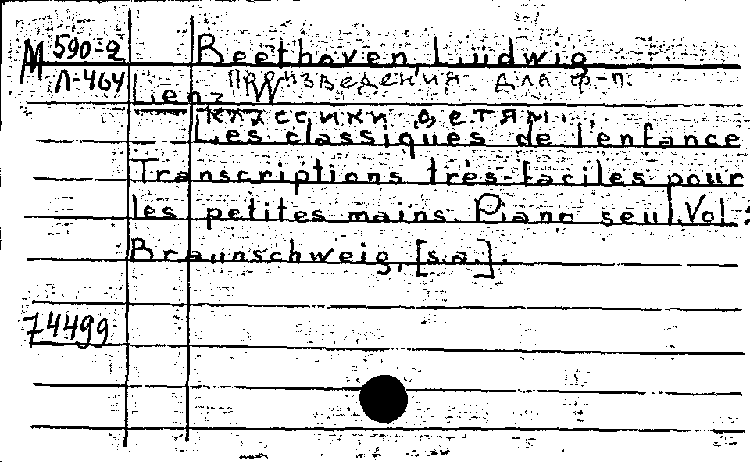 М 590-2 Beethoven, Ludwig
Л-464 Произведения для ф-п.
Lenz W
Классики детям.
Les classiques de l'enfance
Transcriptions très-faciles pour
les petites mains. Piano seul. Vol.
Braunschweig, [s.a.].
74499